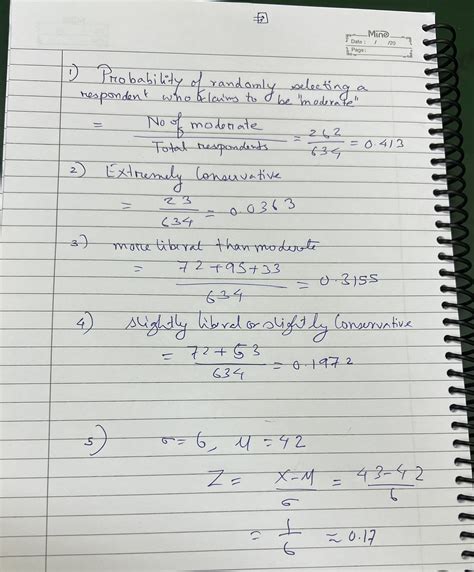 Mino
Date : / /20
Page:
1) Probability of randomly selecting a
respondent who claims to be "moderate"
= No of moderate / Total respondents = 262/634 = 0.413
2) Extremely Conservative
= 23/634 = 0.0363
3) more liberal than moderate
= 72+95+33/634 = 0.3155
4) slightly liberal or slightly Conservative
= 72+53/634 = 0.1972
5) σ=6, M=42
Z = X-M/σ = 43-42/6
= 1/6 ≈ 0.17